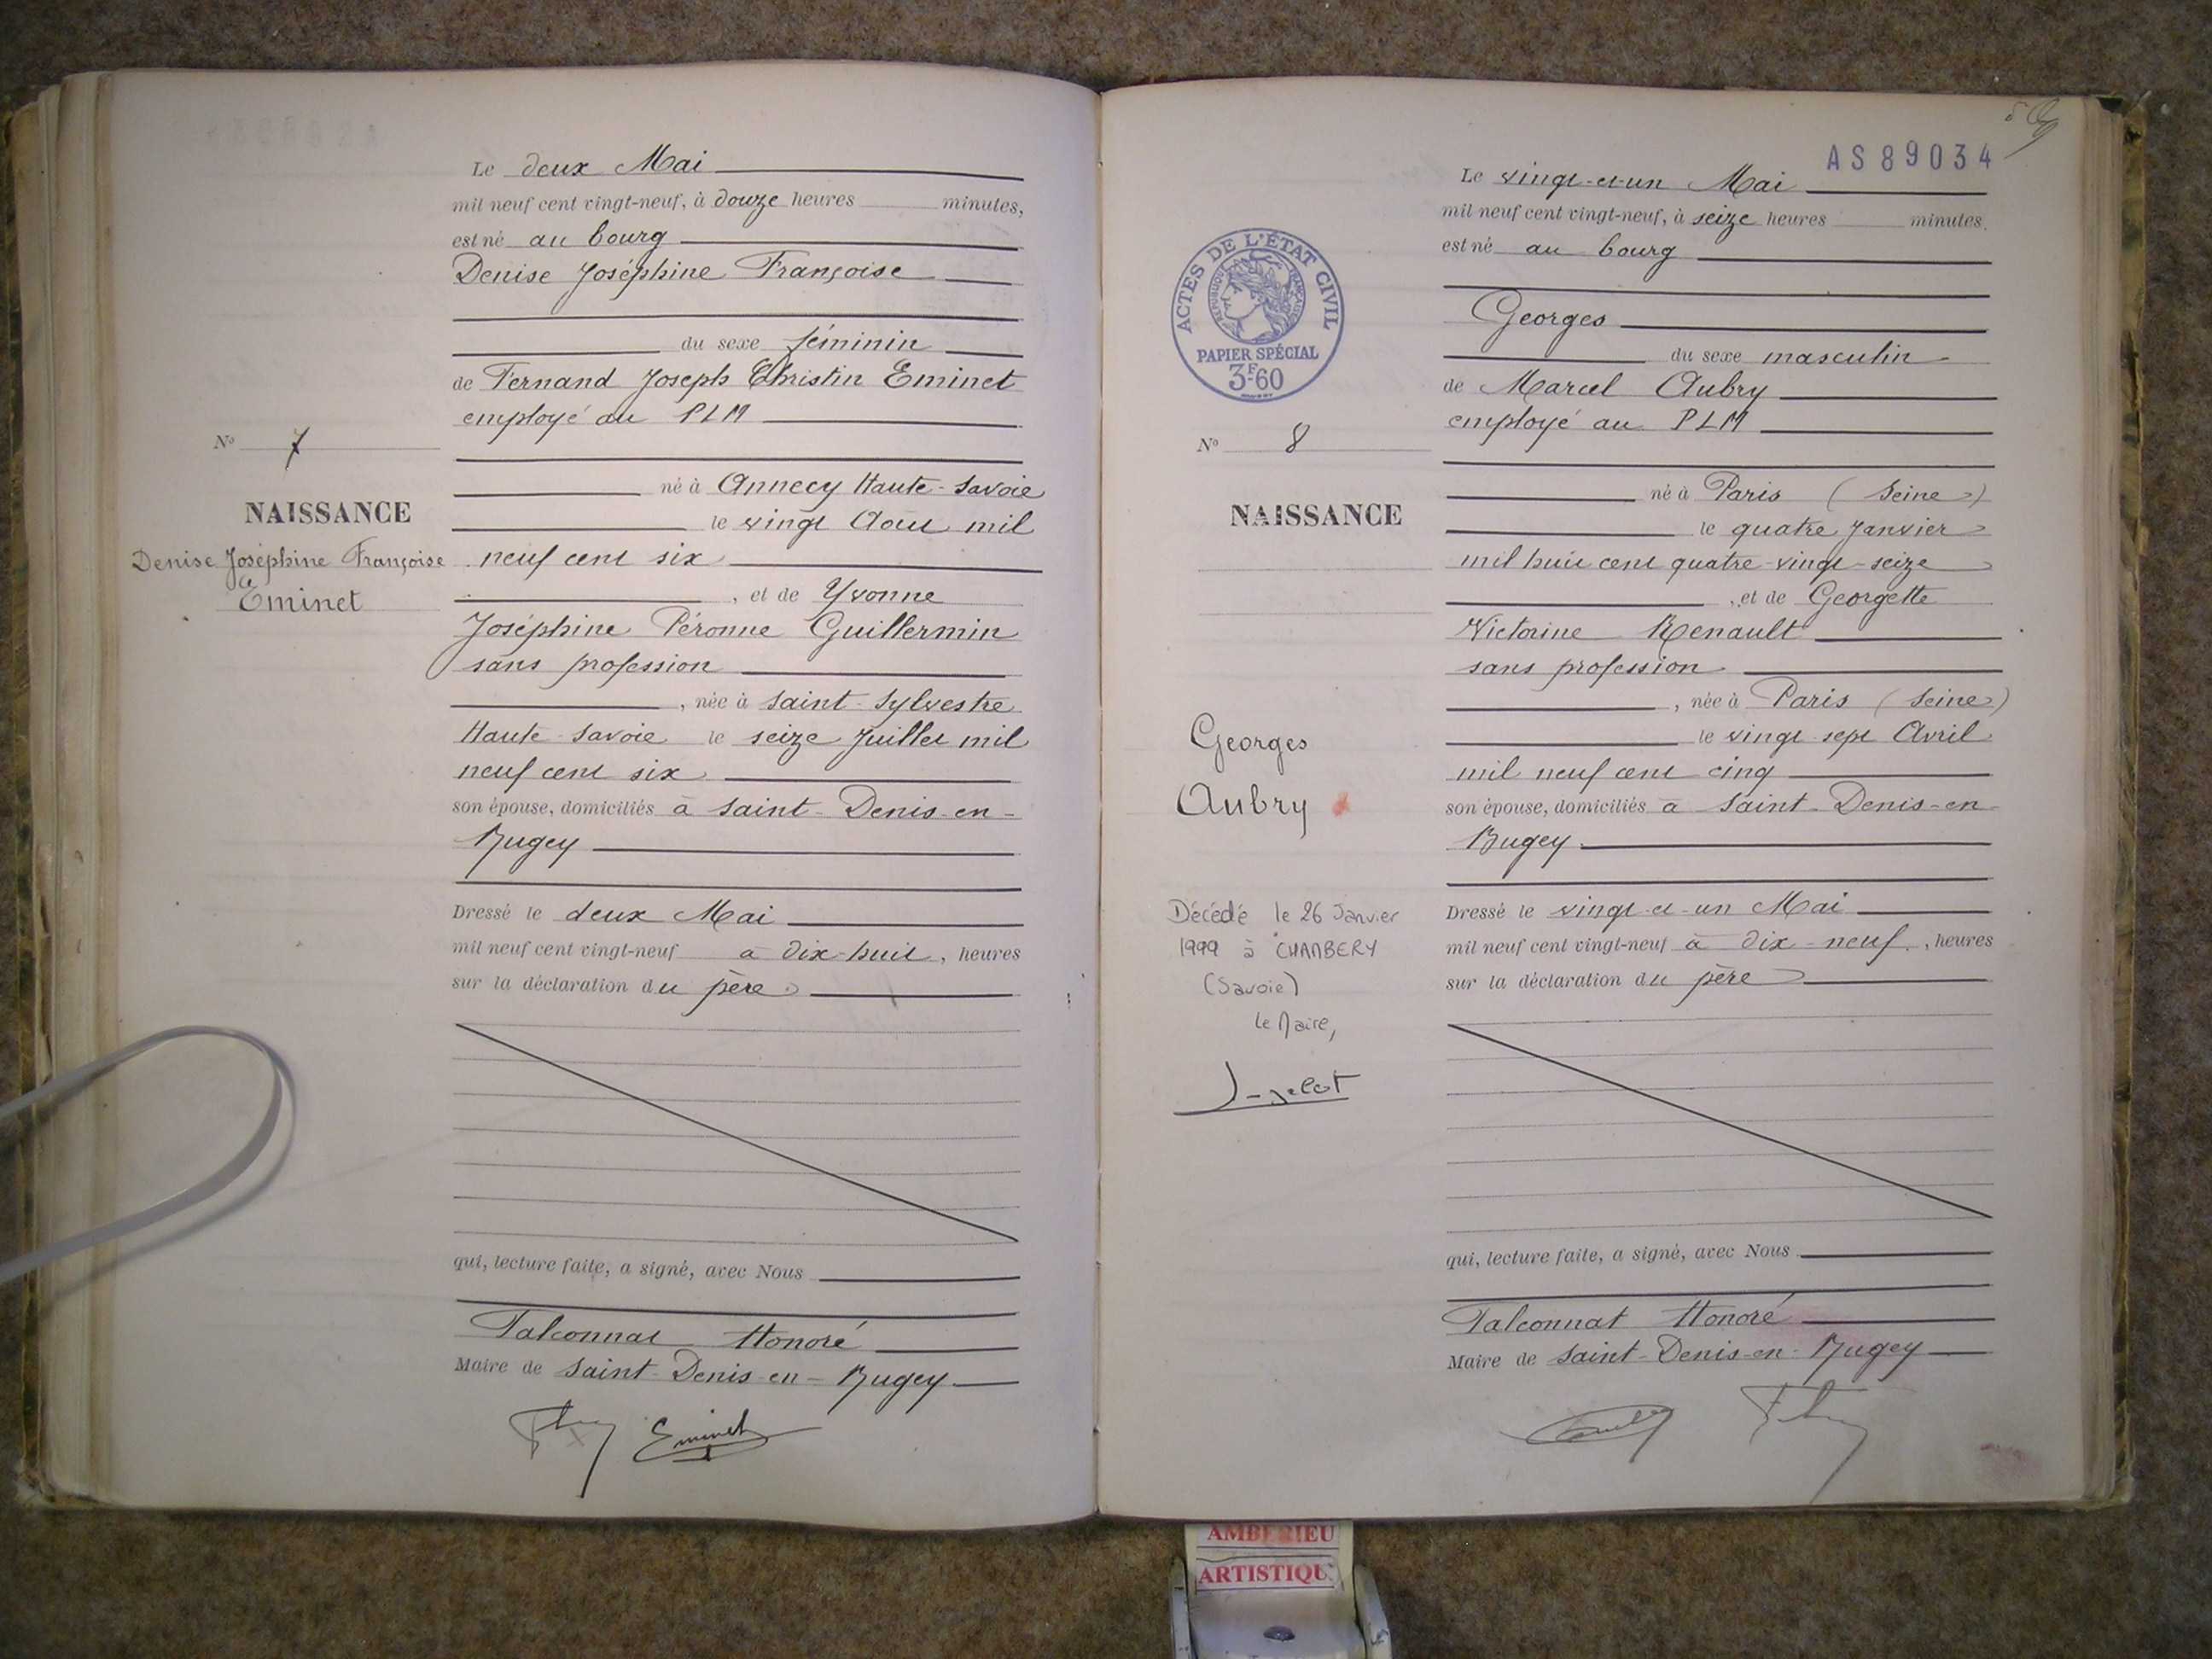 Le deux Mai
mil neuf cent vingt-neuf, à douze heures minutes,
est né au bourg
Denise Joséphine Françoise
du sexe féminin
de Fernand Joseph Christin Eminet
employé au PLM
né à Annecy Haute-Savoie
le vingt Août mil
neuf cent six
, et de Yvonne
Joséphine Péronne Guillermin
sans profession
, née à Saint-Sylvestre
Haute-Savoie le seize Juillet mil
neuf cent six
son épouse, domiciliés à Saint-Denis-en-
Bugey
Dressé le deux Mai
mil neuf cent vingt-neuf à dix-huit, heures
sur la déclaration du père
qui, lecture faite, a signé, avec Nous
Falconnat Honoré
Maire de Saint-Denis-en-Bugey
Eminet
No 7
NAISSANCE
Denise Joséphine Françoise
Eminet
AS89034
Le vingt-et-un Mai
mil neuf cent vingt-neuf, à seize heures minutes.
est né au bourg
Georges
du sexe masculin
de Marcel Aubry
employé au PLM
né à Paris (Seine)
le quatre Janvier
mil huit cent quatre-vingt-seize
, et de Georgette
Victorine Renault
sans profession
, née à Paris (Seine)
le vingt sept Avril
mil neuf cent cinq
son épouse, domiciliés à Saint-Denis-en-
Bugey
Dressé le vingt-et-un Mai
mil neuf cent vingt-neuf à dix-neuf, heures
sur la déclaration du père
qui, lecture faite, a signé, avec Nous
Falconnat Honoré
Maire de Saint-Denis-en-Bugey
ACTES DE L'ÉTAT CIVIL
RÉPUBLIQUE FRANÇAISE
PAPIER SPÉCIAL
3F60
No 8
NAISSANCE
Georges
Aubry
Décédé le 26 Janvier
1999 à CHAMBERY
(Savoie)
Le Maire,
AMBERIEU
ARTISTIQU